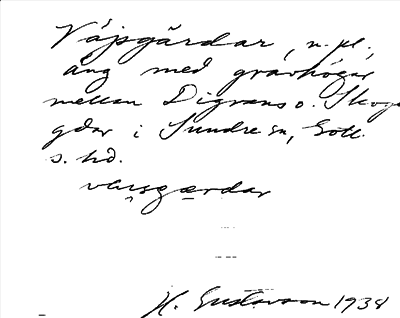 Väjsgärdar, n. pl.,
äng med gravhögar
mellan Digrans o. Skogs
gdar i Sundre sn, Gotl.
s. hd.
gærdar
H. Gustavson 1938